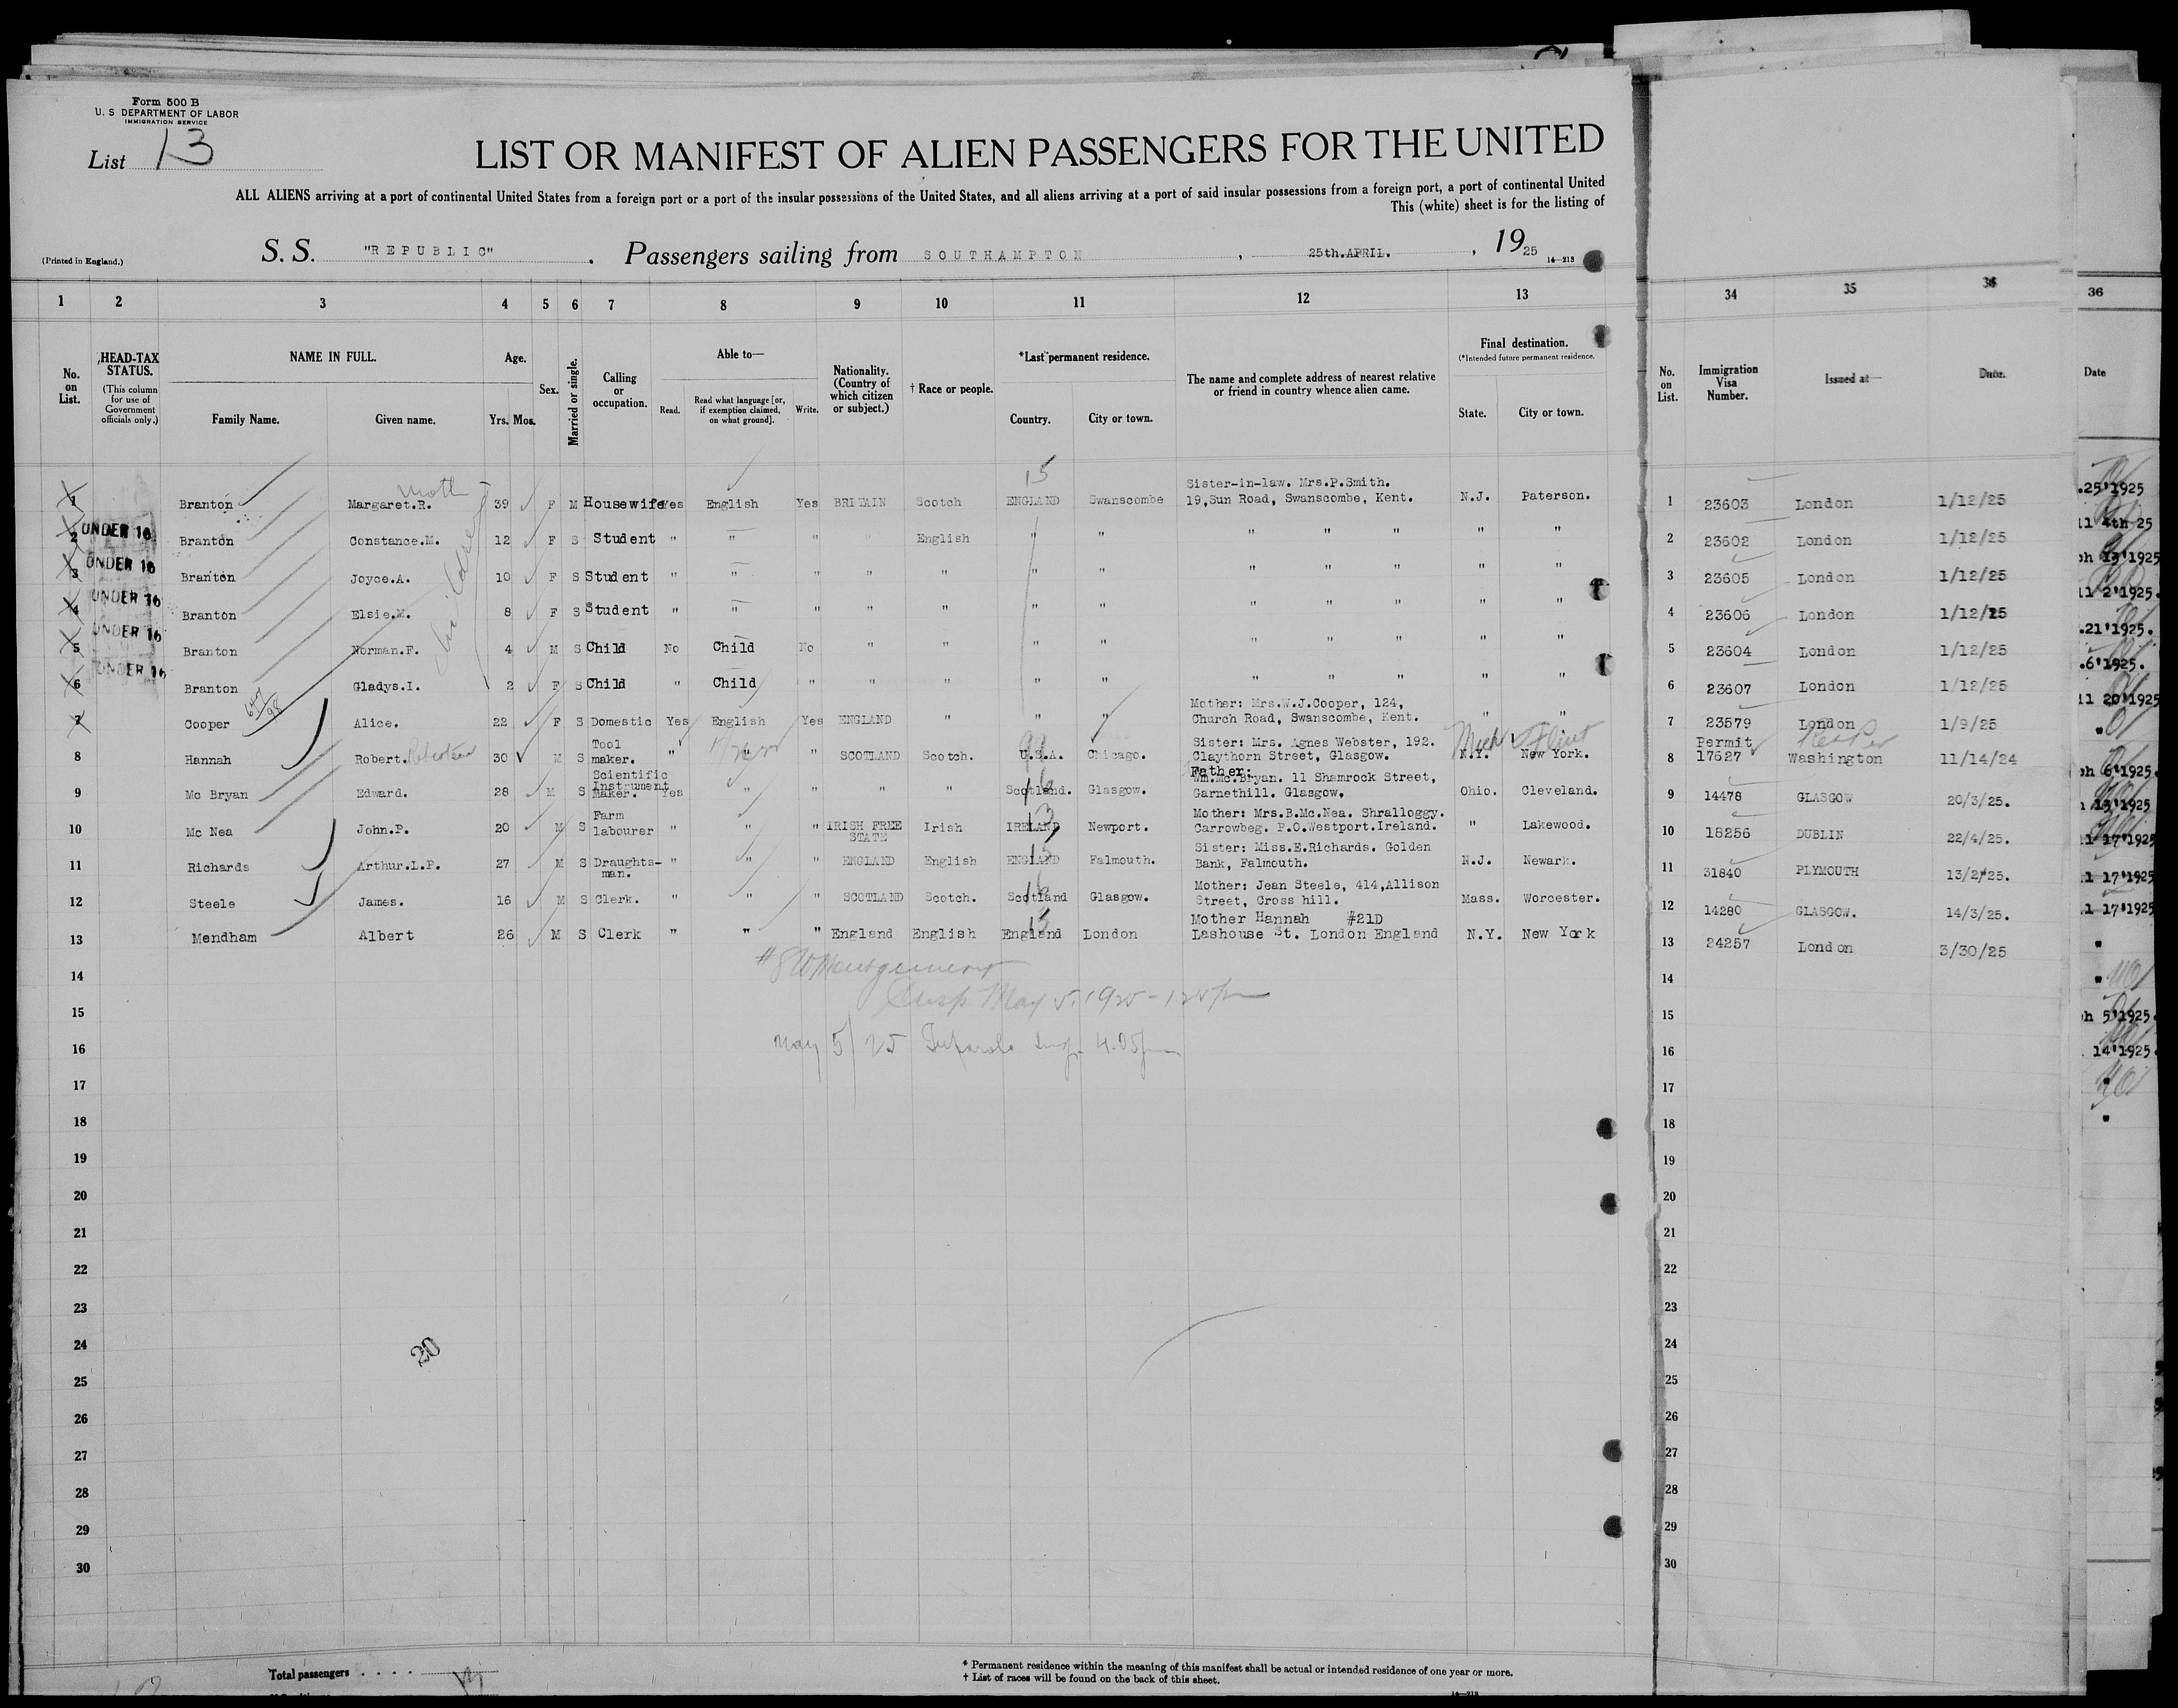 Form 500 B
U. S DEPARTMENT OF LABOR
IMMIGRATION SERVICE
List 13
LIST OR MANIFEST OF ALIEN PASSENGERS FOR THE UNITED
ALL ALIENS arriving at a port of continental United States from a foreign port or a port of the insular possessions of the United States, and all aliens arriving at a port of said insular possessions from a foreign port, a port of continental United
This (white) sheet is for the listing of
(Printed in England.) S. S. "REPUBLIC" . Passengers sailing from SOUTHAMPTON , 25th.APRIL. , 1925 14—213
1 2 3 4 5 6 7 8 9 10 11 12 13 34 35 36 36
No. on List.
HEAD-TAX STATUS.
(This column for use of Government officials only.)
NAME IN FULL.
Family Name. Given name.
Age.
Yrs. Mos.
Sex.
Married or single.
Calling or occupation.
Able to—
Read. Read what language [or, if exemption claimed, on what ground]. Write.
Nationality. (Country of which citizen or subject.)
† Race or people.
*Last permanent residence.
Country. City or town.
The name and complete address of nearest relative or friend in country whence alien came.
Final destination.
(*Intended future permanent residence.
State. City or town.
No. on List.
Immigration Visa Number.
Issued at—
Date.
Date
1 Branton Margaret.R. 39 F M Housewife Yes English Yes BRITAIN Scotch 15 ENGLAND Swanscombe Sister-in-law. Mrs.P.Smith. 19,Sun Road, Swanscombe, Kent. N.J. Paterson. 1 23603 London 1/12/25
2 UNDER 16 Branton Constance.M. 12 F S Student " " " " English " " " " " " " 2 23602 London 1/12/25
3 UNDER 16 Branton Joyce.A. 10 F S Student " " " " " " " " " " " " 3 23605 London 1/12/25
4 UNDER 16 Branton Elsie.M. 8 F S Student " " " " " " " " " " " " 4 23606 London 1/12/25
5 UNDER 16 Branton Norman.F. 4 M S Child No Child No " " " " " " " " " 5 23604 London 1/12/25
6 UNDER 16 Branton Gladys.I. 2 F S Child " Child " " " " " " " " " " 6 23607 London 1/12/25
7 Cooper Alice. 22 F S Domestic Yes English Yes ENGLAND " " " Mother: Mrs.W.J.Cooper, 124, Church Road, Swanscombe, Kent. " " 7 23579 London 1/9/25
8 Hannah Robert. Robertson 30 M S Tool maker. " " " SCOTLAND Scotch. U.S.A. Chicago. Sister: Mrs. Agnes Webster, 192. Claythorn Street, Glasgow. N.Y. New York. Mich Flint 8 Permit 17627 Washington 11/14/24
9 Mc Bryan Edward. 28 M S Scientific Instrument maker. Yes " " " " Scotland. Glasgow. Father: Wm.Mc.Bryan. 11 Shamrock Street, Garnethill. Glasgow. Ohio. Cleveland. 9 14478 GLASGOW 20/3/25.
10 Mc Nea John.P. 20 M S Farm labourer " " " IRISH FREE STATE Irish IRELAND Newport. Mother: Mrs.B.Mc.Nea. Shralloggy. Carrowbeg. P.O.Westport.Ireland. " Lakewood. 10 18256 DUBLIN 22/4/25.
11 Richards Arthur.L.P. 27 M S Draughts-man. " " " ENGLAND English ENGLAND Falmouth. Sister: Miss.E.Richards. Golden Bank, Falmouth. N.J. Newark. 11 31840 PLYMOUTH 13/2/25.
12 Steele James. 16 M S Clerk. " " " SCOTLAND Scotch. Scotland Glasgow. Mother: Jean Steele, 414,Allison Street, Cross hill. Mass. Worcester. 12 14280 GLASGOW. 14/3/25.
13 Mendham Albert 26 M S Clerk " " " England English England London Mother Hannah #21D Leshouse St. London England N.Y. New York 13 24257 London 3/30/25
14 14
15 May 5, 1925 15
16 May 5/25 4.05 pm 16
17 17
18 18
19 19
20 20
21 21
22 22
23 23
24 20 24
25 25
26 26
27 27
28 28
29 29
30 30
Total passengers . . . .
* Permanent residence within the meaning of this manifest shall be actual or intended residence of one year or more.
† List of races will be found on the back of this sheet.
14—213